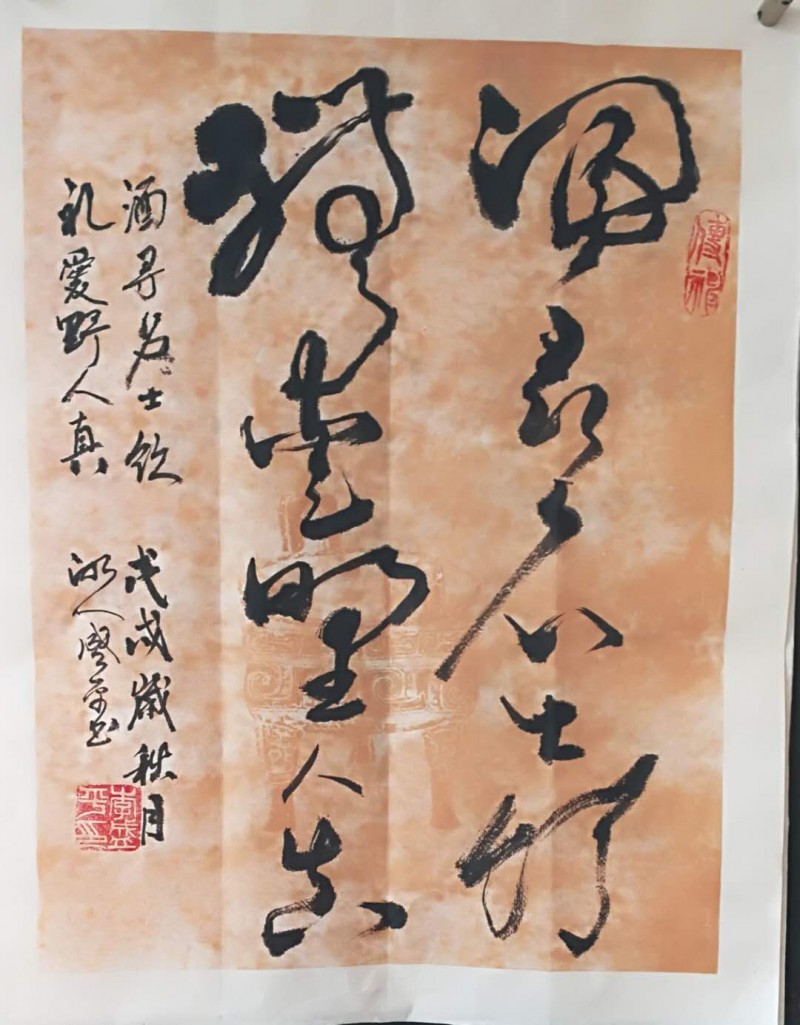 酒寻名士饮
礼爱野人真
酒寻名士饮 戊戌歲秋月
礼愛野人真 人盛平书